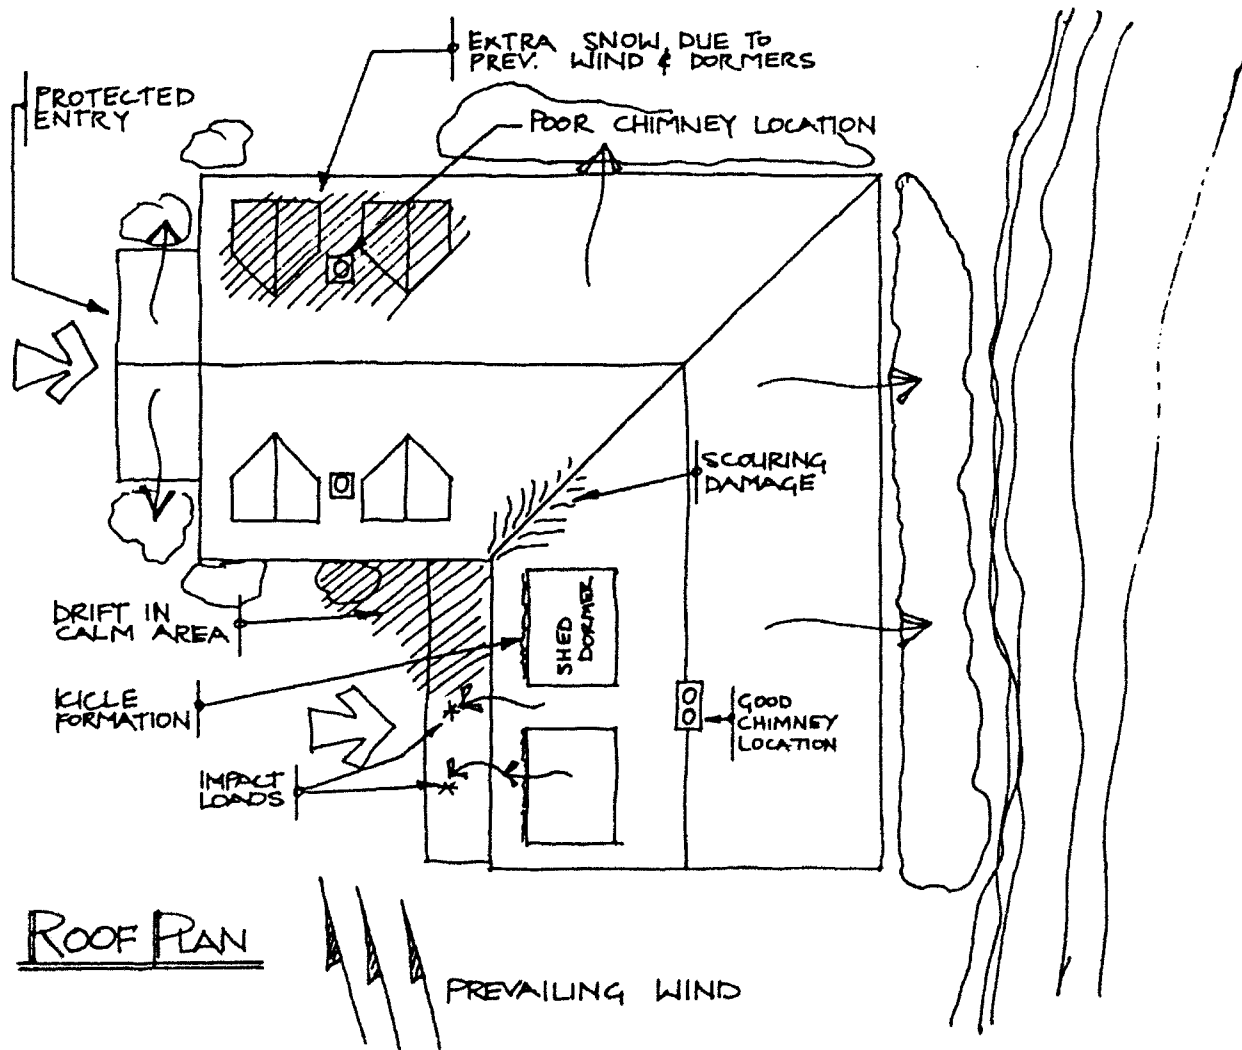 EXTRA SNOW DUE TO
PREV. WIND & DORMERS
PROTECTED
ENTRY
POOR CHIMNEY LOCATION
SCOURING
DAMAGE
DRIFT IN
CALM AREA
SHED
DORMER
ICICLE
FORMATION
GOOD
CHIMNEY
LOCATION
IMPACT
LOADS
ROOF PLAN
PREVAILING WIND